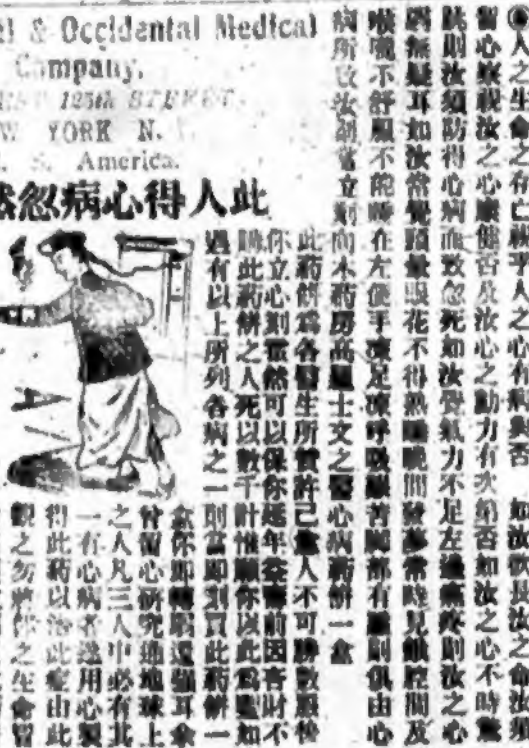 l & Occidental Medical
Company,
EST 125th STREET,
W YORK N. Y.
S. America.
此人得心病忽然
人之生命之存亡賴乎人之心有病與否 如欲長汝之命汝須
留心察視汝之心康健否及汝心之動力有次第否如汝之心不時驚
跳則汝須防得心病而致忽死如汝覺氣力不足左邊痛疼則汝之心
弱無疑耳如汝常覺頭暈眼花不得熟睡晚間發夢常時見餓腔間及
喉嚨不舒服不能睡在左便手凍足凍呼吸艱苦脚部有腫則俱由心
病所致汝當立刻向本藥房高士文之醫心病藥餅一盒
此藥餅爲各醫生所賞許已愈人不可勝數快
你立心刻然可以保你延年益壽前因吝財不
購此藥餅之人死以數千計惟願你以此爲鑑如
過有以上所列各病之一則當即刻買此藥餅一
盒你即轉弱還強耳余
曾留心研究通地球上
之人凡三人中必有其
一有心病者用心製
得此藥以治此症由此
觀之勿將你之生命冒